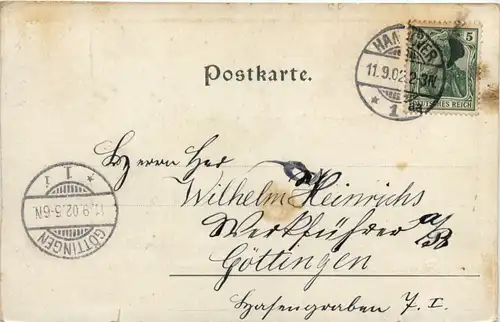 HANNOVER
11.9.02.2-3N.
* 1
5
DEUTSCHES REICH
Postkarte.
* 1 i
11.9.02.5-6N.
GÖTTINGEN
Herrn
Wilhelm Heinrichs
Werkführer
Göttingen
Hasengraben 7. I.